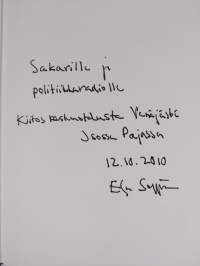 Sakarille ja
politiikkaradiolle
Kiitos keskustelusta Venäjästä
Isossa Pajassa
12.10.2010